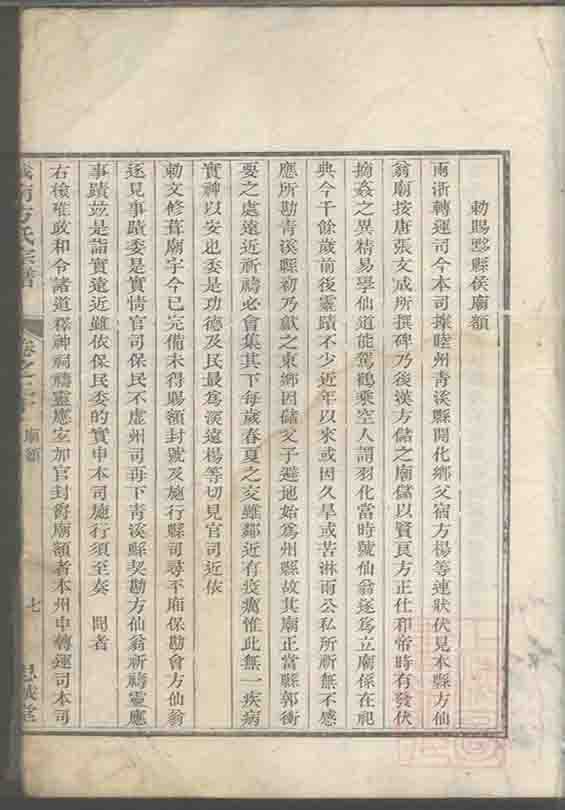 勅賜黟縣侯廟額
兩浙轉運司今本司據睦州青溪縣開化鄉父宿方楊等連狀伏見本縣方仙
翁廟按唐張文成所撰碑乃後漢方儲之廟儲以賢良方正仕和帝時有發伏
摘姦之異精易學仙道能駕鶴乘空人謂羽化當時號仙翁遂爲立廟係在祀
典今千餘歲前後靈蹟不少近年以來或因久旱或苦淋雨公私所祈無不感
應所勘青溪縣初乃歙之東鄉因儲父子避地始爲州縣故其廟正當縣郭衝
要之處遠近祈禱必會集其下每歲春夏之交雖鄰近有疫癘惟此無一疾病
實神以安也委是功德及民最爲深遠楊等切見官司近依
勅文修葺廟宇今已完備未得賜額封號及施行縣司尋不廂保勘會方仙翁
逐見事蹟委是實情官司保民不虛州司再下青溪縣契勘方仙翁祈禱靈應
事蹟竝是詣實遠近雖依保民委的實申本司施行須至奏 聞者
右檢准政和令諸道釋神祠禱靈應宜加官封爵廟額者本州申轉運司本司
方氏宗譜 卷之 廟額 七